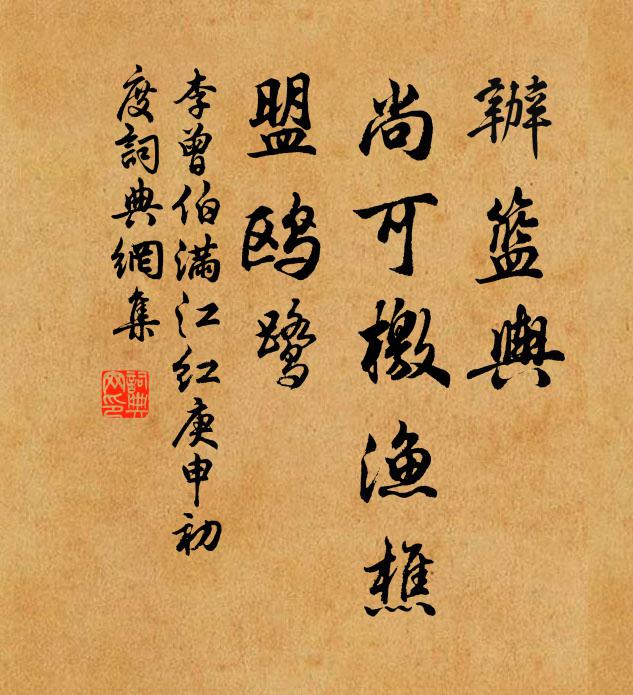 辦籃輿
尚可檄漁樵
盟鷗鷺
李曾伯滿江紅庚申初
度詞典網集
詞典
网印